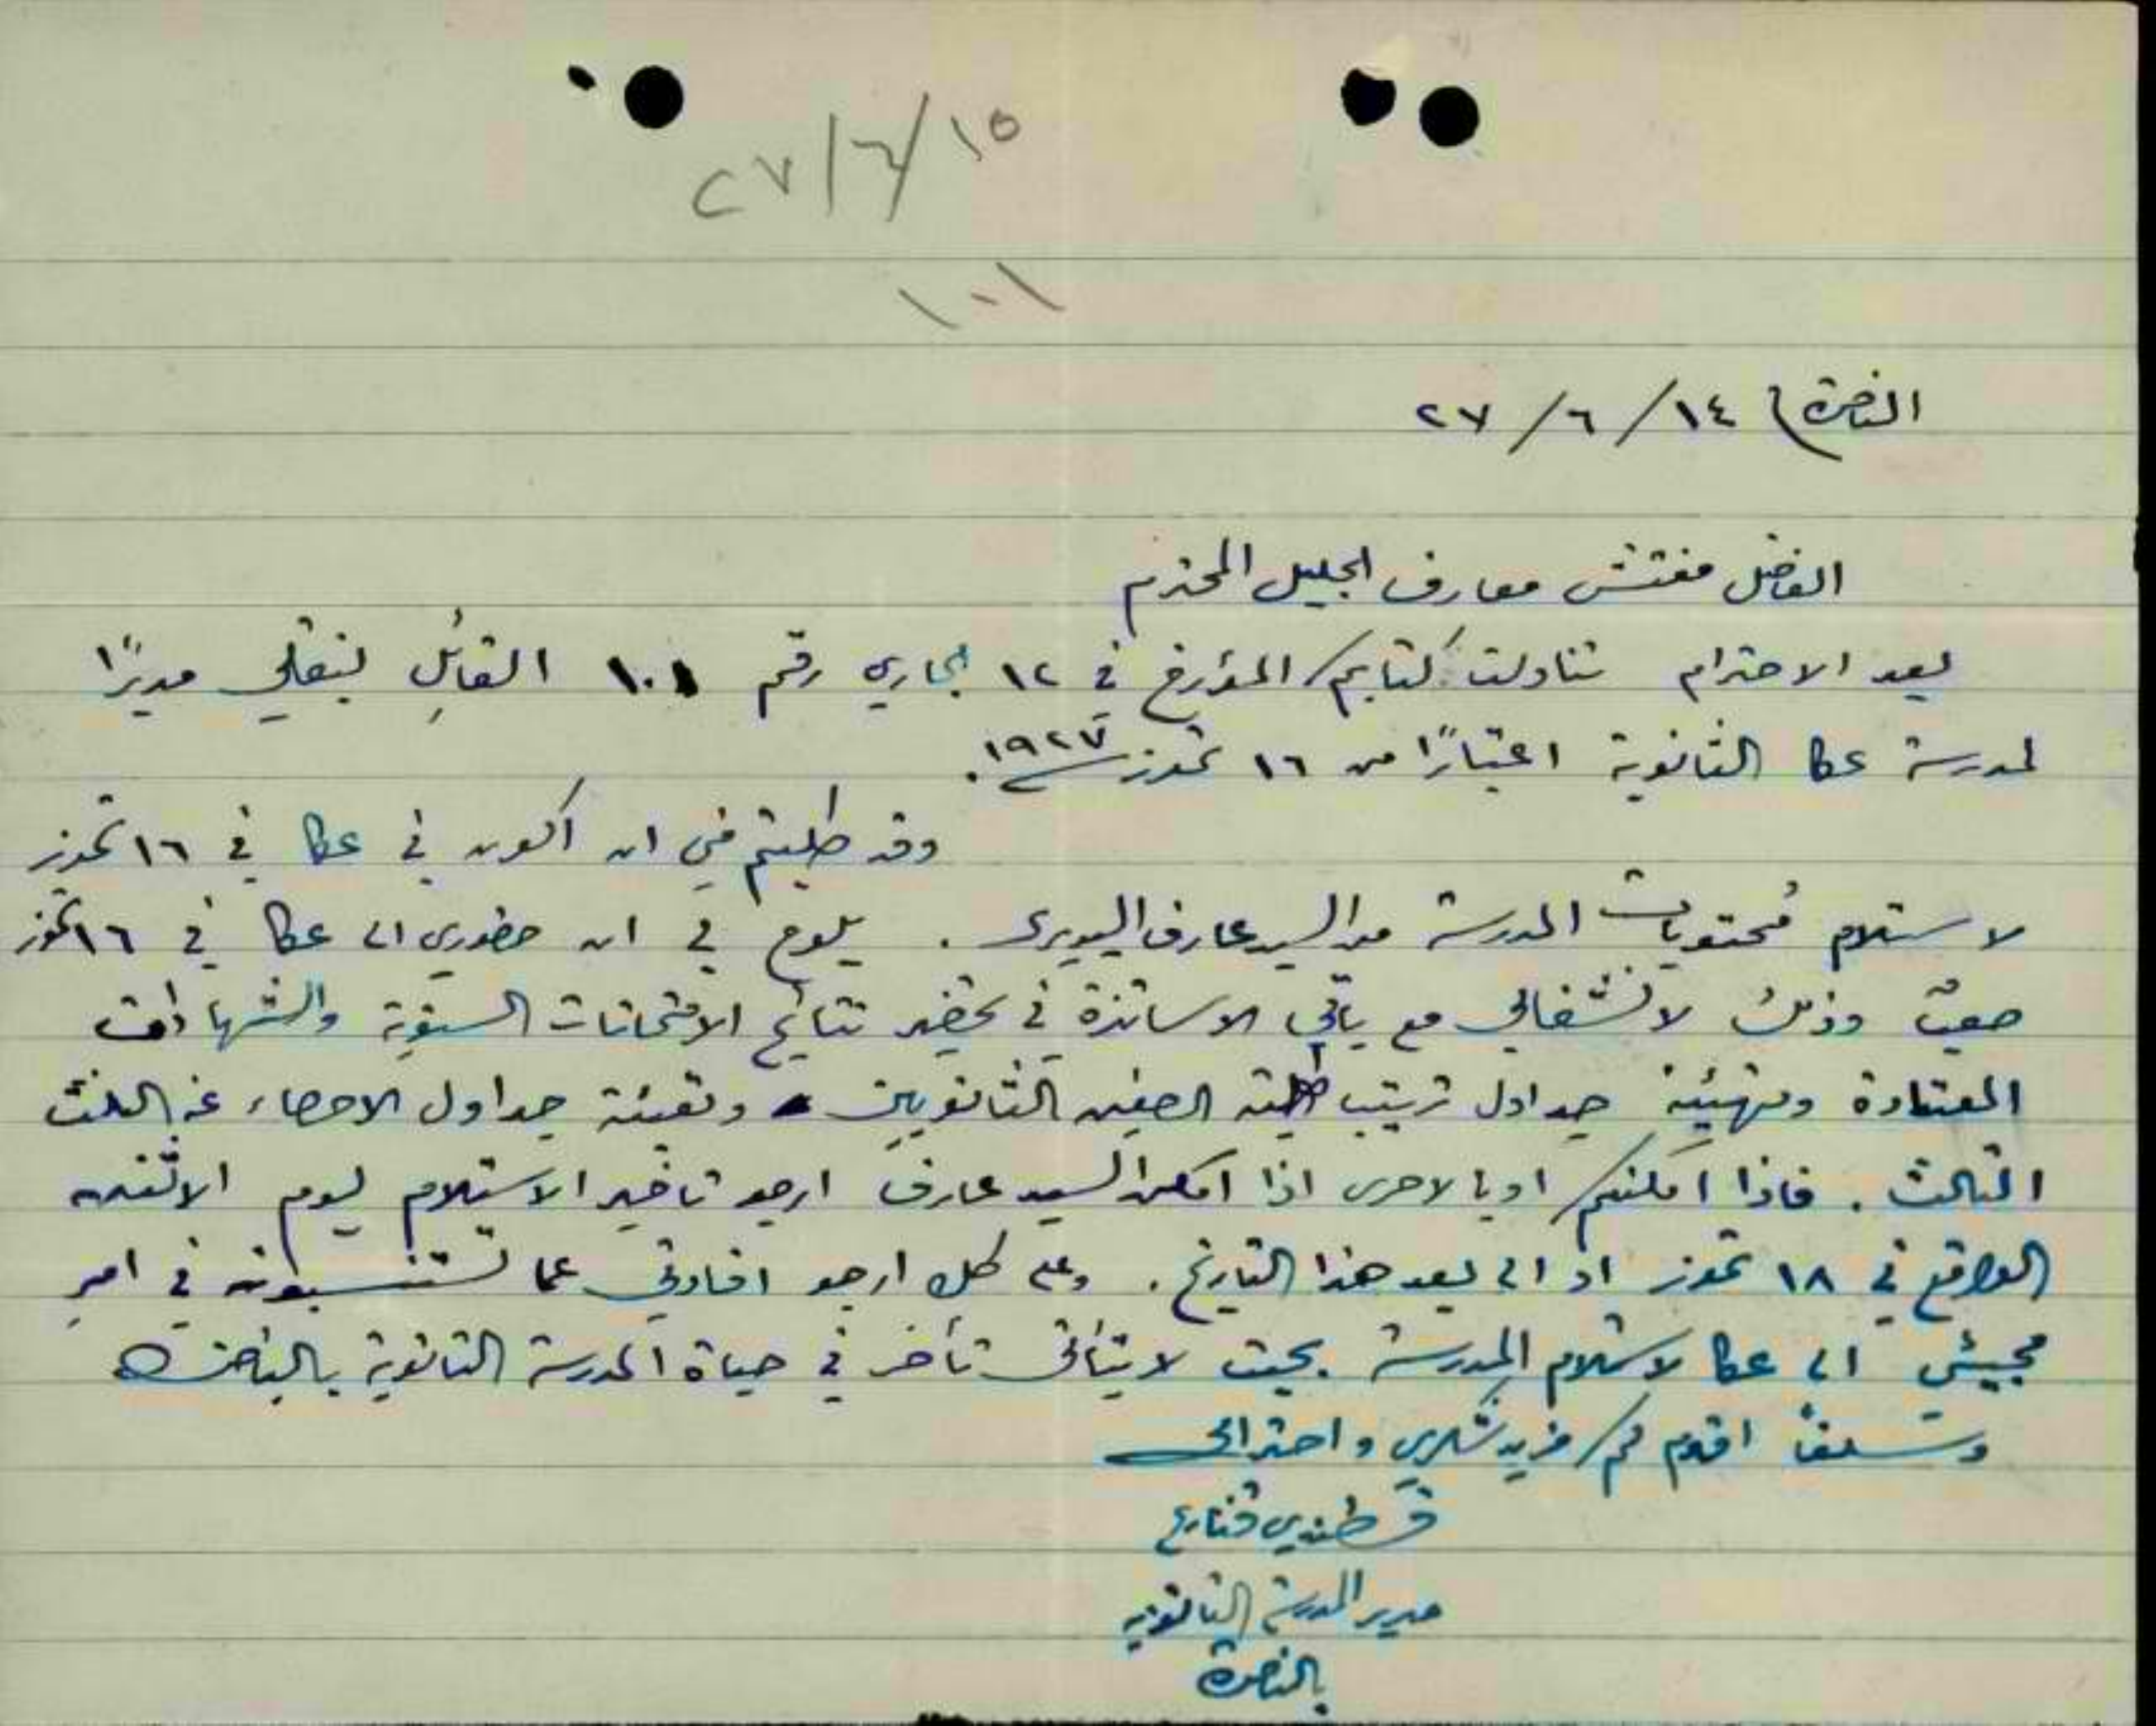 ٢٧/٦/١٥
١٠١
الناصرة) ١٤/٦/٢٧
الفاضل مفتش معارف الجليل المحترم
بعد الاحترام تناولت كتابكم المؤرخ في ١٢ الجاري رقم ١٠١ القائل بنقلي مديرًا
لمدرسة عكا الثانوية اعتبارًا من ١٦ تموز سنة ١٩٢٧.
وقد طلبتم مني ان اكون في عكا في ١٦ تموز
لاستلام مُحتويات المدرسة من السيد عارف البديري. يلوح لي ان حضوري الى عكا في ١٦ تموز
صعبٌ وذلك لانشغالي مع باقي الاساتذة في تحضير نتائج الامتحانات السنوية والشهادات
المعتادة وتهيئة جداول ترتيب طلبة الصفين الثانويين وتعبئة جداول الاحصاء عن الثلث
الثالث. فاذا امكنكم او بالاحرى اذا امكن السيد عارف ارجو تاخير الاستلام ليوم الاثنين
الواقع في ١٨ تموز او الى بعد هذا التاريخ. وعلى كل ارجو افادتي عما تستنسبونه في امر
مجيئي الى عكا لاستلام المدرسة بحيث لا يتأتى تأخر في حياة المدرسة الثانوية بالناصرة
وسلفًا اقدم لكم مزيد شكري و احترامي
قسطندي قنازع
مدير المدرسة الثانوية
بالناصرة